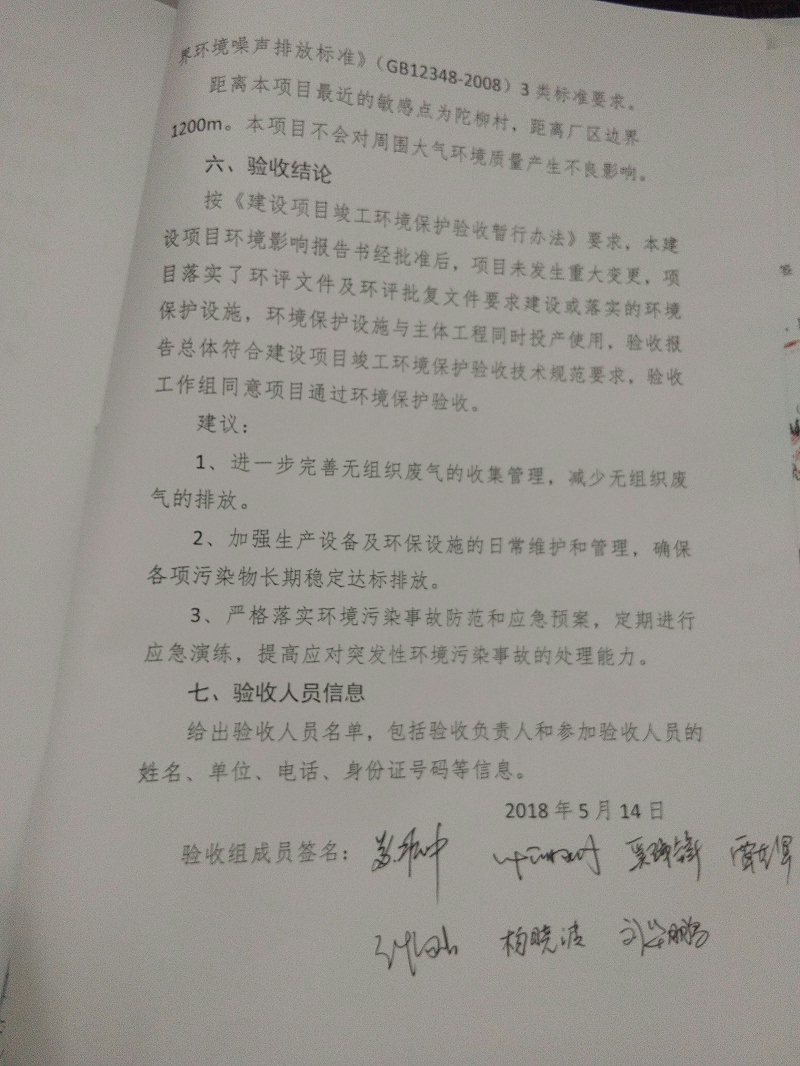 界环境噪声排放标准》（GB12348-2008）3 类标准要求。
距离本项目最近的敏感点为陀柳村，距离厂区边界
1200m。本项目不会对周围大气环境质量产生不良影响。
六、验收结论
按《建设项目竣工环境保护验收暂行办法》要求，本建
设项目环境影响报告书经批准后，项目未发生重大变更，项
目落实了环评文件及环评批复文件要求建设或落实的环境
保护设施，环境保护设施与主体工程同时投产使用，验收报
告总体符合建设项目竣工环境保护验收技术规范要求，验收
工作组同意项目通过环境保护验收。
建议：
1、进一步完善无组织废气的收集管理，减少无组织废
气的排放。
2、加强生产设备及环保设施的日常维护和管理，确保
各项污染物长期稳定达标排放。
3、严格落实环境污染事故防范和应急预案，定期进行
应急演练，提高应对突发性环境污染事故的处理能力。
七、验收人员信息
给出验收人员名单，包括验收负责人和参加验收人员的
姓名、单位、电话、身份证号码等信息。
2018 年 5 月 14 日
验收组成员签名：
杨晓波